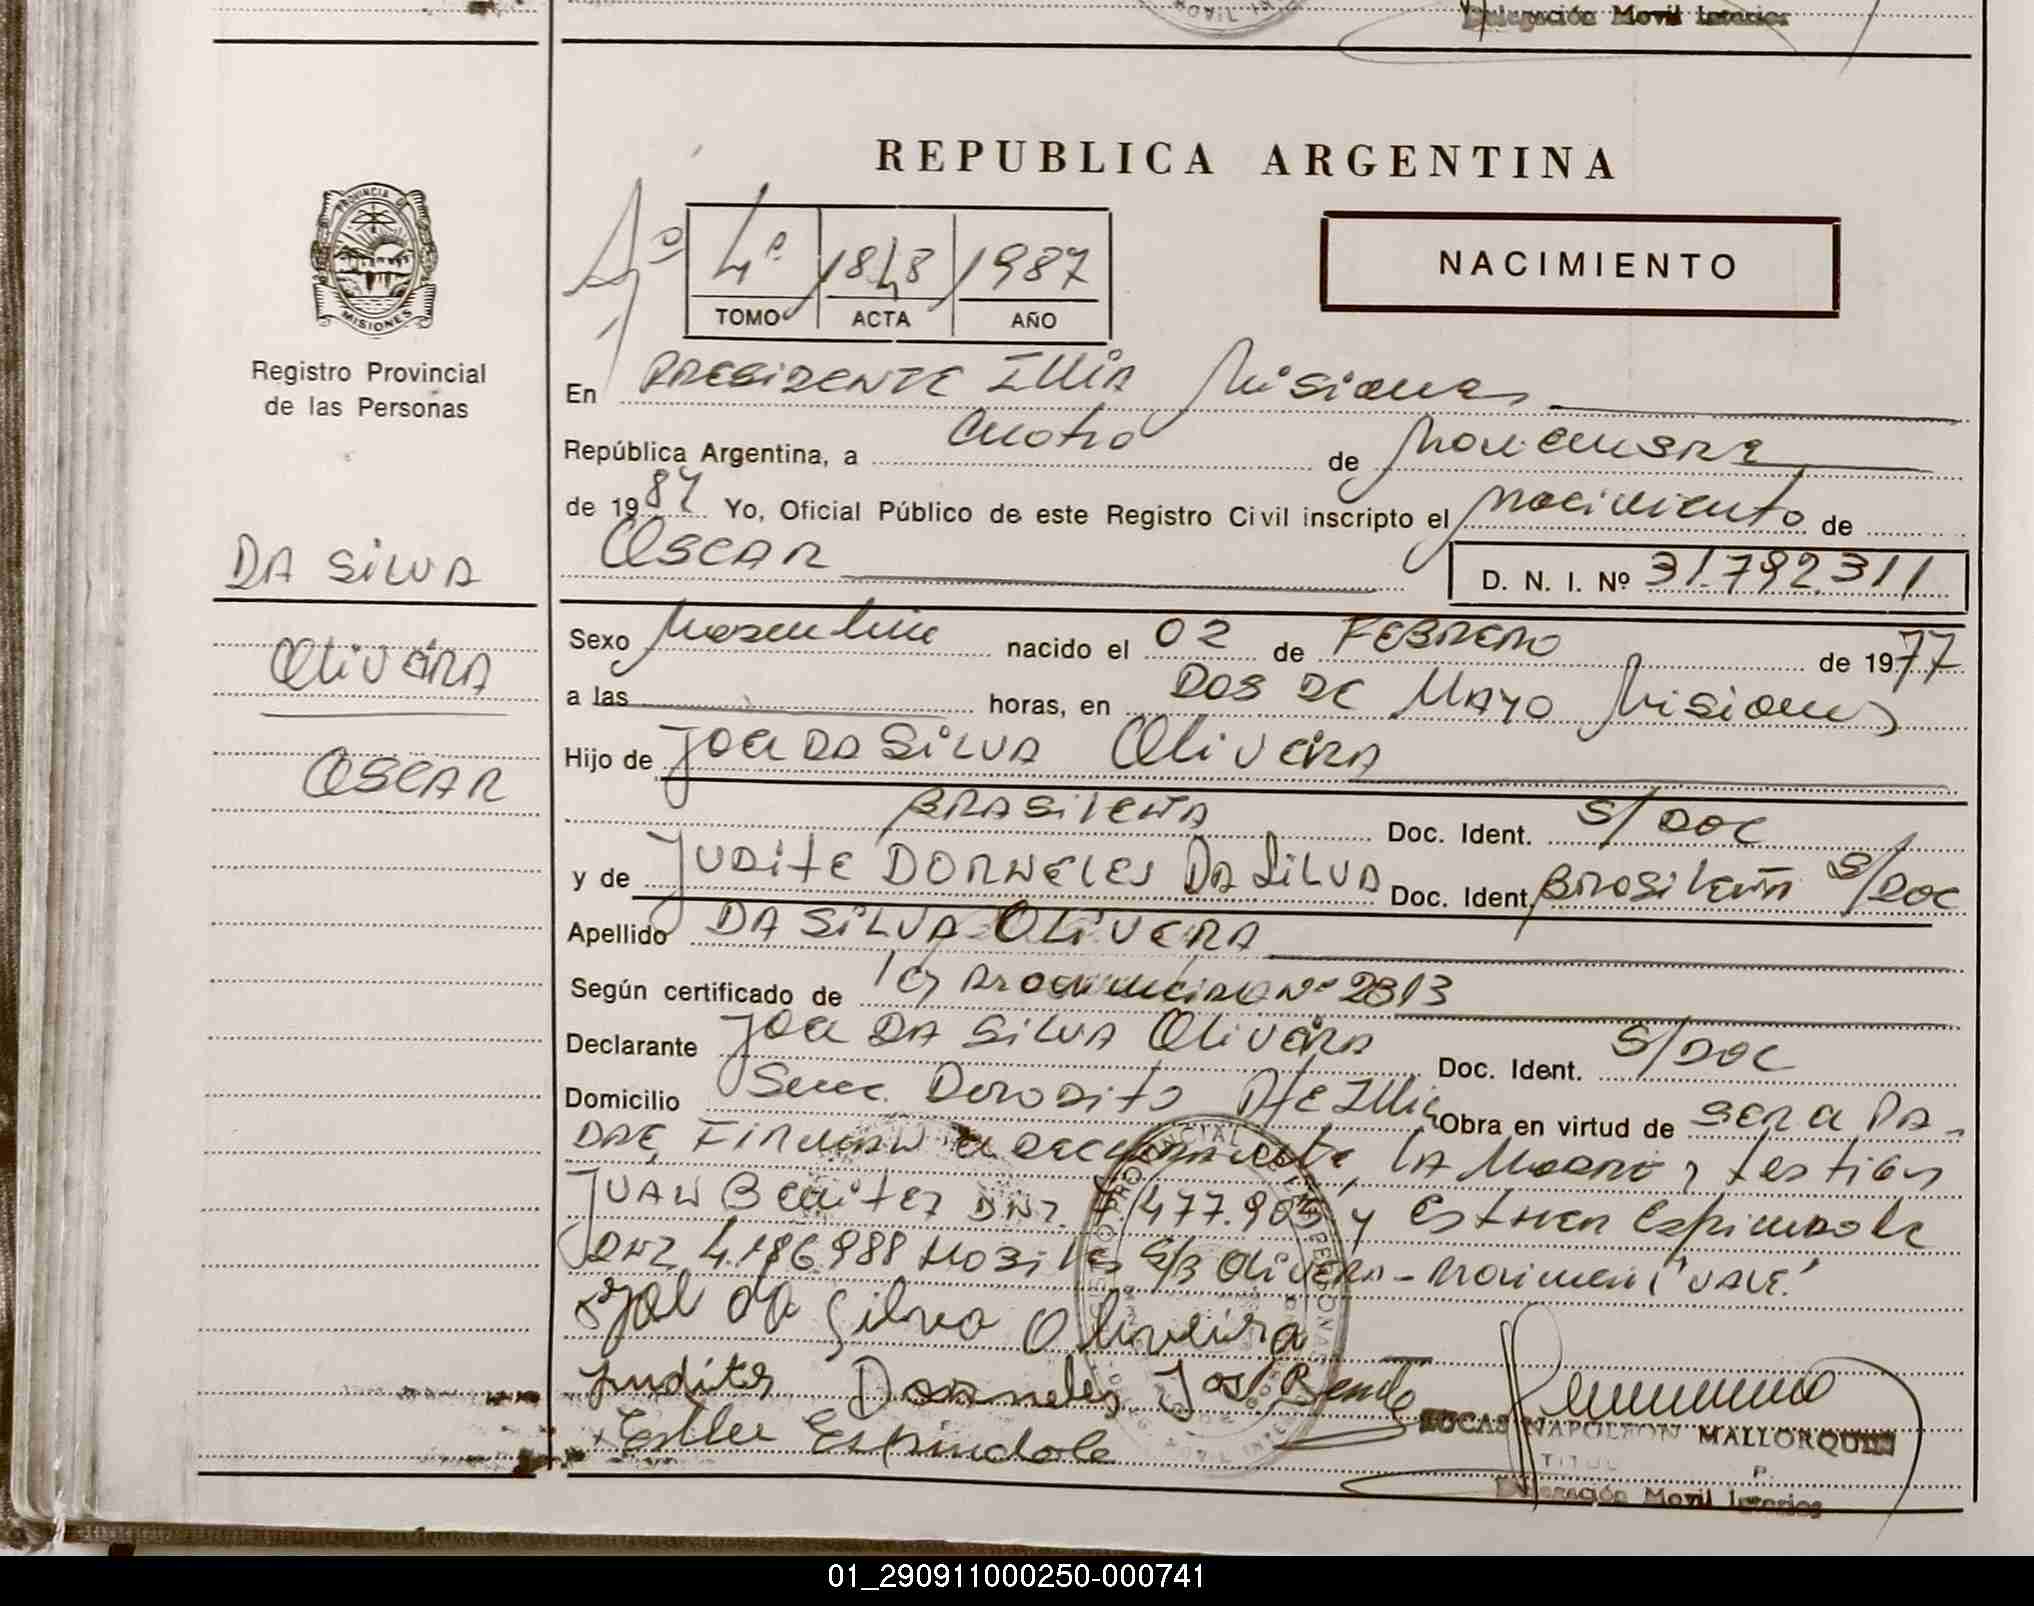 Delegación Movil Interior
REPUBLICA ARGENTINA
PROVINCIA DE
MISIONES
4º 1848 1987
TOMO ACTA AÑO
NACIMIENTO
Registro Provincial
de las Personas
En PRESIDENTE Illia Misiones
República Argentina, a Cuatro de Noviembre
de 1987 Yo, Oficial Público de este Registro Civil inscripto el nacimiento de
OSCAR D. N. I. Nº 31.792.311
DA SILVA
OLIVEIRA
OSCAR
Sexo Masculino nacido el 02 de FEBRERO de 1977
a las horas, en DOS DE MAYO Misiones
Hijo de DA SILVA OLIVEIRA
BRASILEÑA Doc. Ident. S/DOC
y de JUDITE DORNELES DA SILVA Doc. Ident. Brasileña S/DOC
Apellido DA SILVA OLIVERA
Según certificado de Nº 2813
Declarante DA SILVA OLIVEIRA Doc. Ident. S/DOC
Domicilio Obra en virtud de SER EL PA-
DRE, FIRMAN el DECLARANTE, LA MADRE y testigos
JUAN Benitez DNI. 7.477.905 y Esther Espindola
DNI 4.186.988 S/B OLIVERA - "VALE"
da Silva Oliveira
Judite Dorneles
Esther Espindola
LUCAS NAPOLEON MALLORQUIN
TITUL
Delegación Movil Interior
01_290911000250-000741